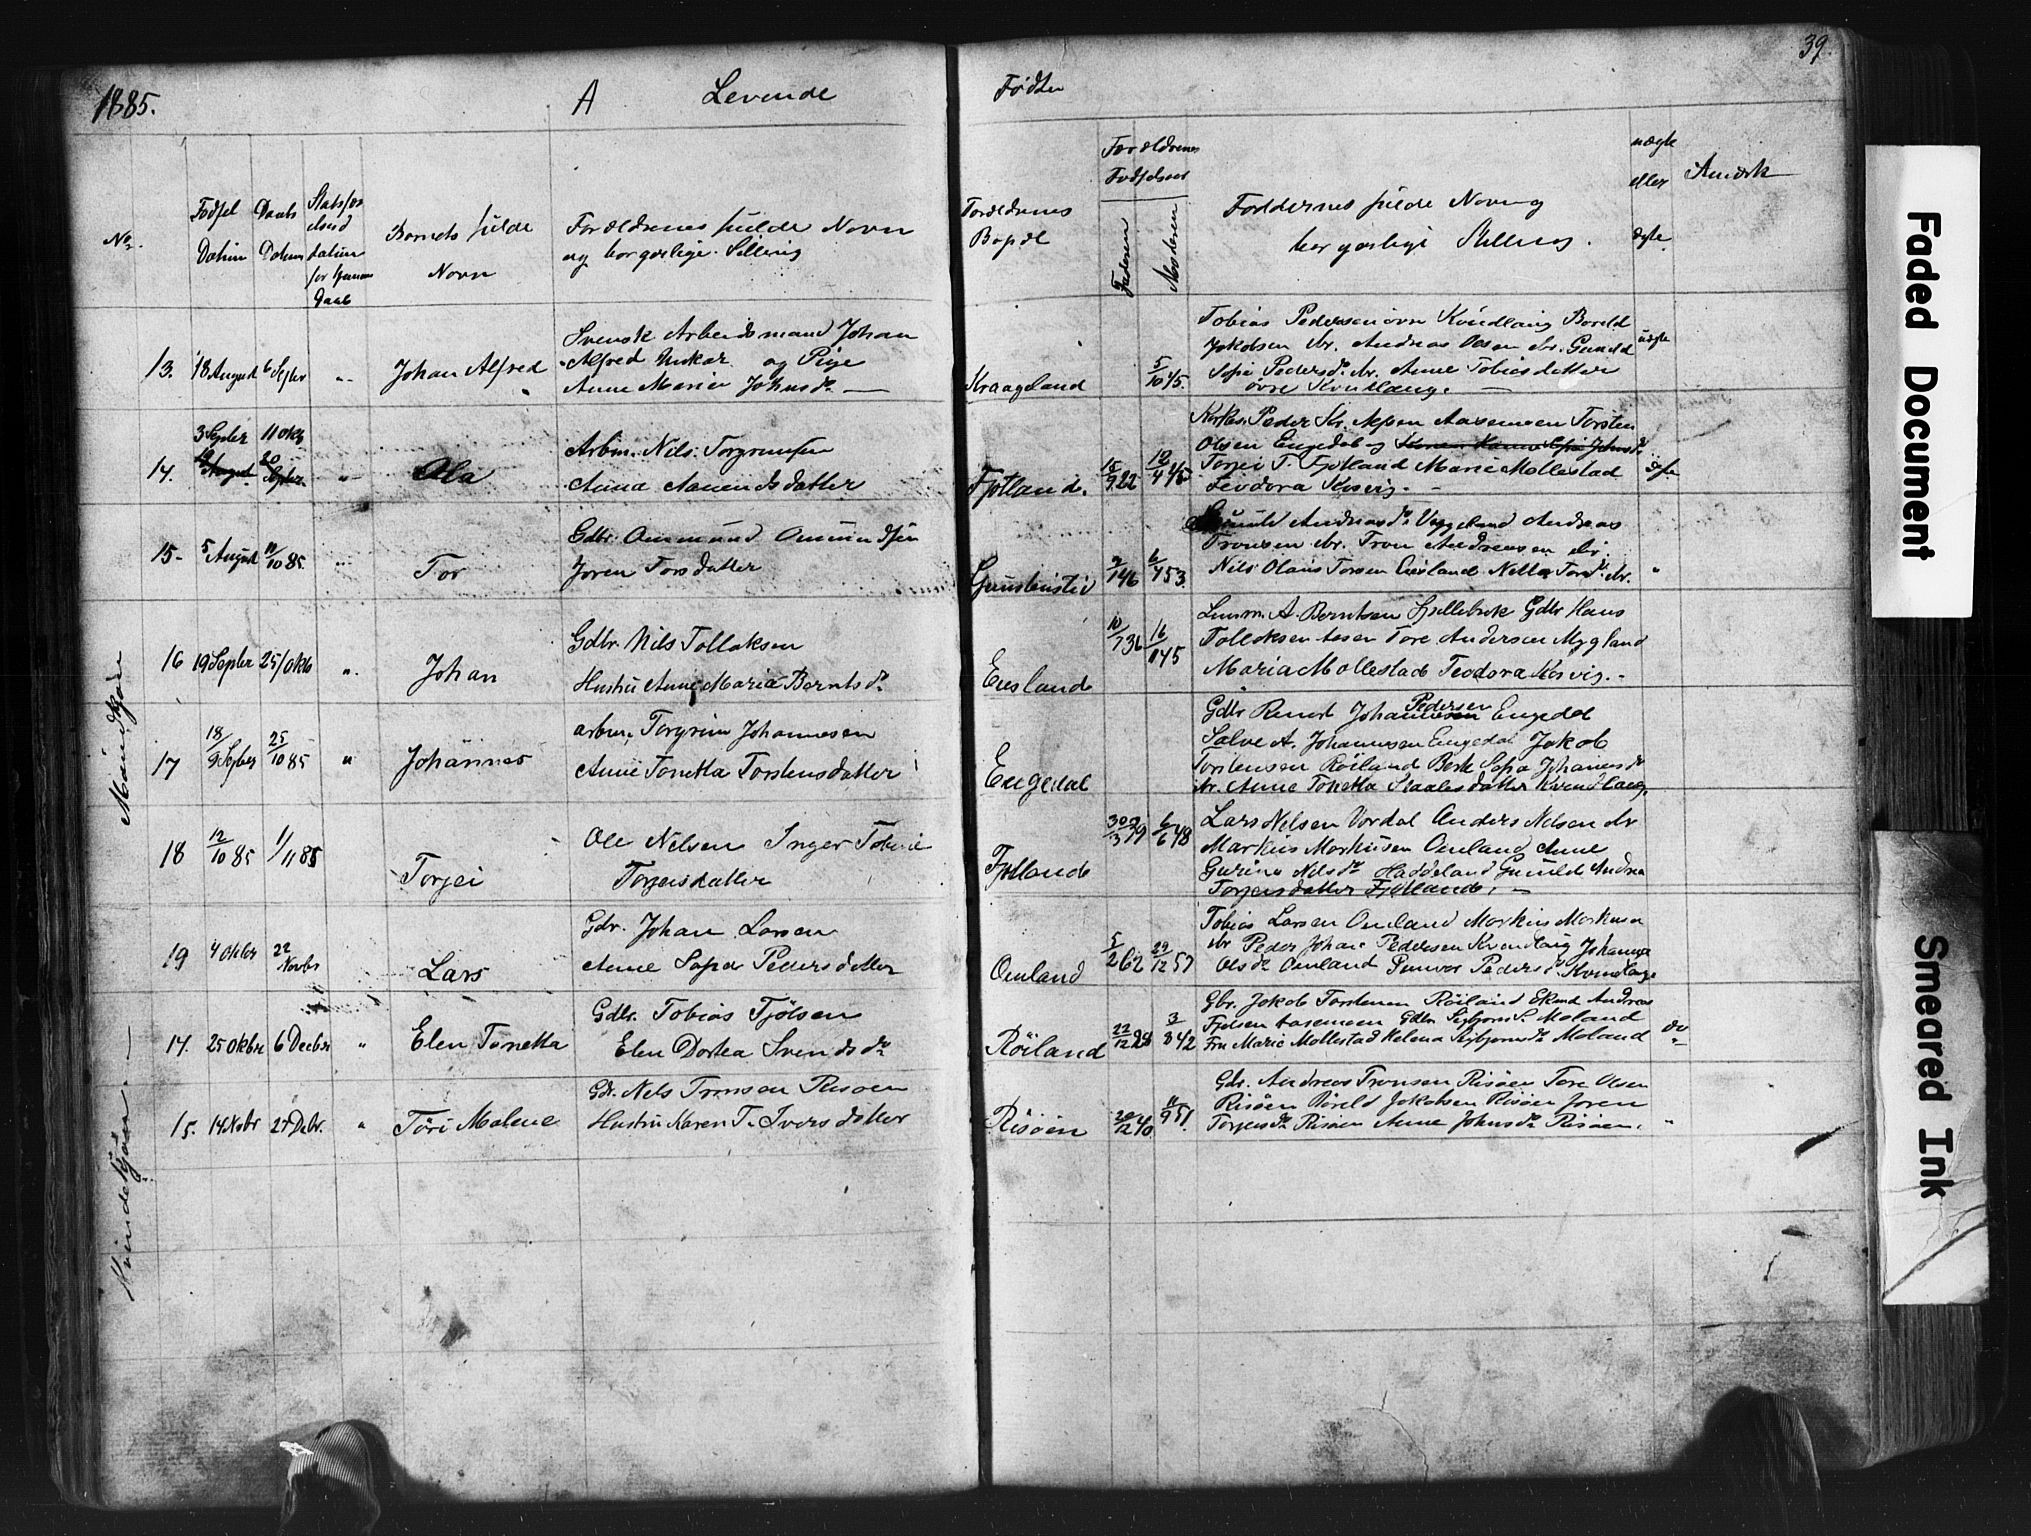 1885.
A
Levende
Fødte
39.
No.
Fødsel
Datum
Daabs
Datum
datum
for hjemme
Daab
Barnets fulde
Navn
Forældrenes fulde Navn
og borgerlige Stilling
Forældrenes
Bopæl
Forældrenes
Fødselsaar
Faderen
Moderen
Faddernes fulde Navn og
borgerlige Stilling.
uægte
eller
ægte
Anmærk
Mandkjøn
13. 18 August 6 Septer " Johan Alfred
Svensk Arbeidsmand Johan
Alfred og Pige
Anne Maria Johnsdr
Kraageland
5/10 45
Tobias Pedersen øvre Kvindlaug Boreld
Jakobsen ibr. Andreas Olsen ibr. Gunild
Sofie Pedersdr. ibr. Anne Tobiasdatter
øvre Kvindlaug.
uægte
14. 3 Septer 11 Okb
August 20 Septer " Ola
Arbm. Nils Torgrimsen
Anna Aanensdatter
Fjotland.
15/9 22 12/4 45
Peder Aasemoen Torsten
Olsen Engedal og
Torjei T. Fjotland Marie Mollestad
Teodora Kosvig.
ægte
15- 5 August 11/10 85. " Tor
Gdbr. Ommund Ommundsen
Joren Torsdatter
Gunstensli
2/1 46 6/4 53
Gunild Andreasdr. Veggeland Andreas
Tronsen ibr. Tron Andreasen ibr.
Nils Olaus Torsen Eiesland Nella Torsdr. ibr. "
16 19 Septer 25/Okb " Johan
Gdbr. Nils Tollaksen
Hustru Anne Maria Berntsdr
Eiesland
10/7 36 16/1 45
Lensm. A. Berntsen Gyllebæk Gdbr Hans
Tollaksen Aasen Tore Andersen Mygland
Maria Mollestad Teodora Kosvig.
17 18/9 Septber 25/10 85 " Johannes
arbm. Torgrim Johannesen
Anne Tonetta Torstensdatter
Engedal
Pedersen
Gdbr Johannesen Engedal
Salve A. Johannesen Engedal Jakob
Torstensen Røiland Berte Sofia Johanesdr
ibr. Anne Tonetta Staalesdatter Kvindlaug.
18 12/10 85 1/11 85 Torjei
Ole Nelsen Inger Tobine
Torjeisdatter
Fjotland
30/3 29 6/6 48
Lars Nelsen Vordal Anders Nelsen ibr
Markus Markusen Omland Anne
Gurine Nilsdr Haddeland Gunild Andrea
Torjeisdatter Fjotland.
19 4 Okber 22 Novbr Lars
Gdbr. Johan Larsen
Anne Sofia Pedersdatter
Omland
5/2 62 29/12 57
Tobias Larsen Omland Markus Markusen
ibr Peder Johan Pedersen Kvindlaug Johanne
Olsdr Omland Pedersdr. Kvindlaug
Kvindekjøn.
14. 25 Okber 6 Decber " Elen Tonetta
Gdbr. Tobias Fjølsen
Elen Dortea Svendsdr
Røiland
22/12 28 3/8 42
Gbr. Jakob Torstensen Røiland Andreas
Fjelsen Aasemoen Gdbr Sigbjørn S. Moland
Fru Marie Mollestad Helena Sigbjørnsdr Moland
do
15. 14 Nobr 27 Debr. " Tori Malene
Gdr. Nels Tronsen Risøen
Hustru Karen T. Iversdatter
Risøen
20/12 40 11/9 51.
Gdr. Andreas Tronsen Risøen Tore Olsen
Risøen Boreld Jakobsen Risøen Joren
Torjeisdr. Risøen Anne Johnsdr Risøen. "
Faded Document
Smeared Ink